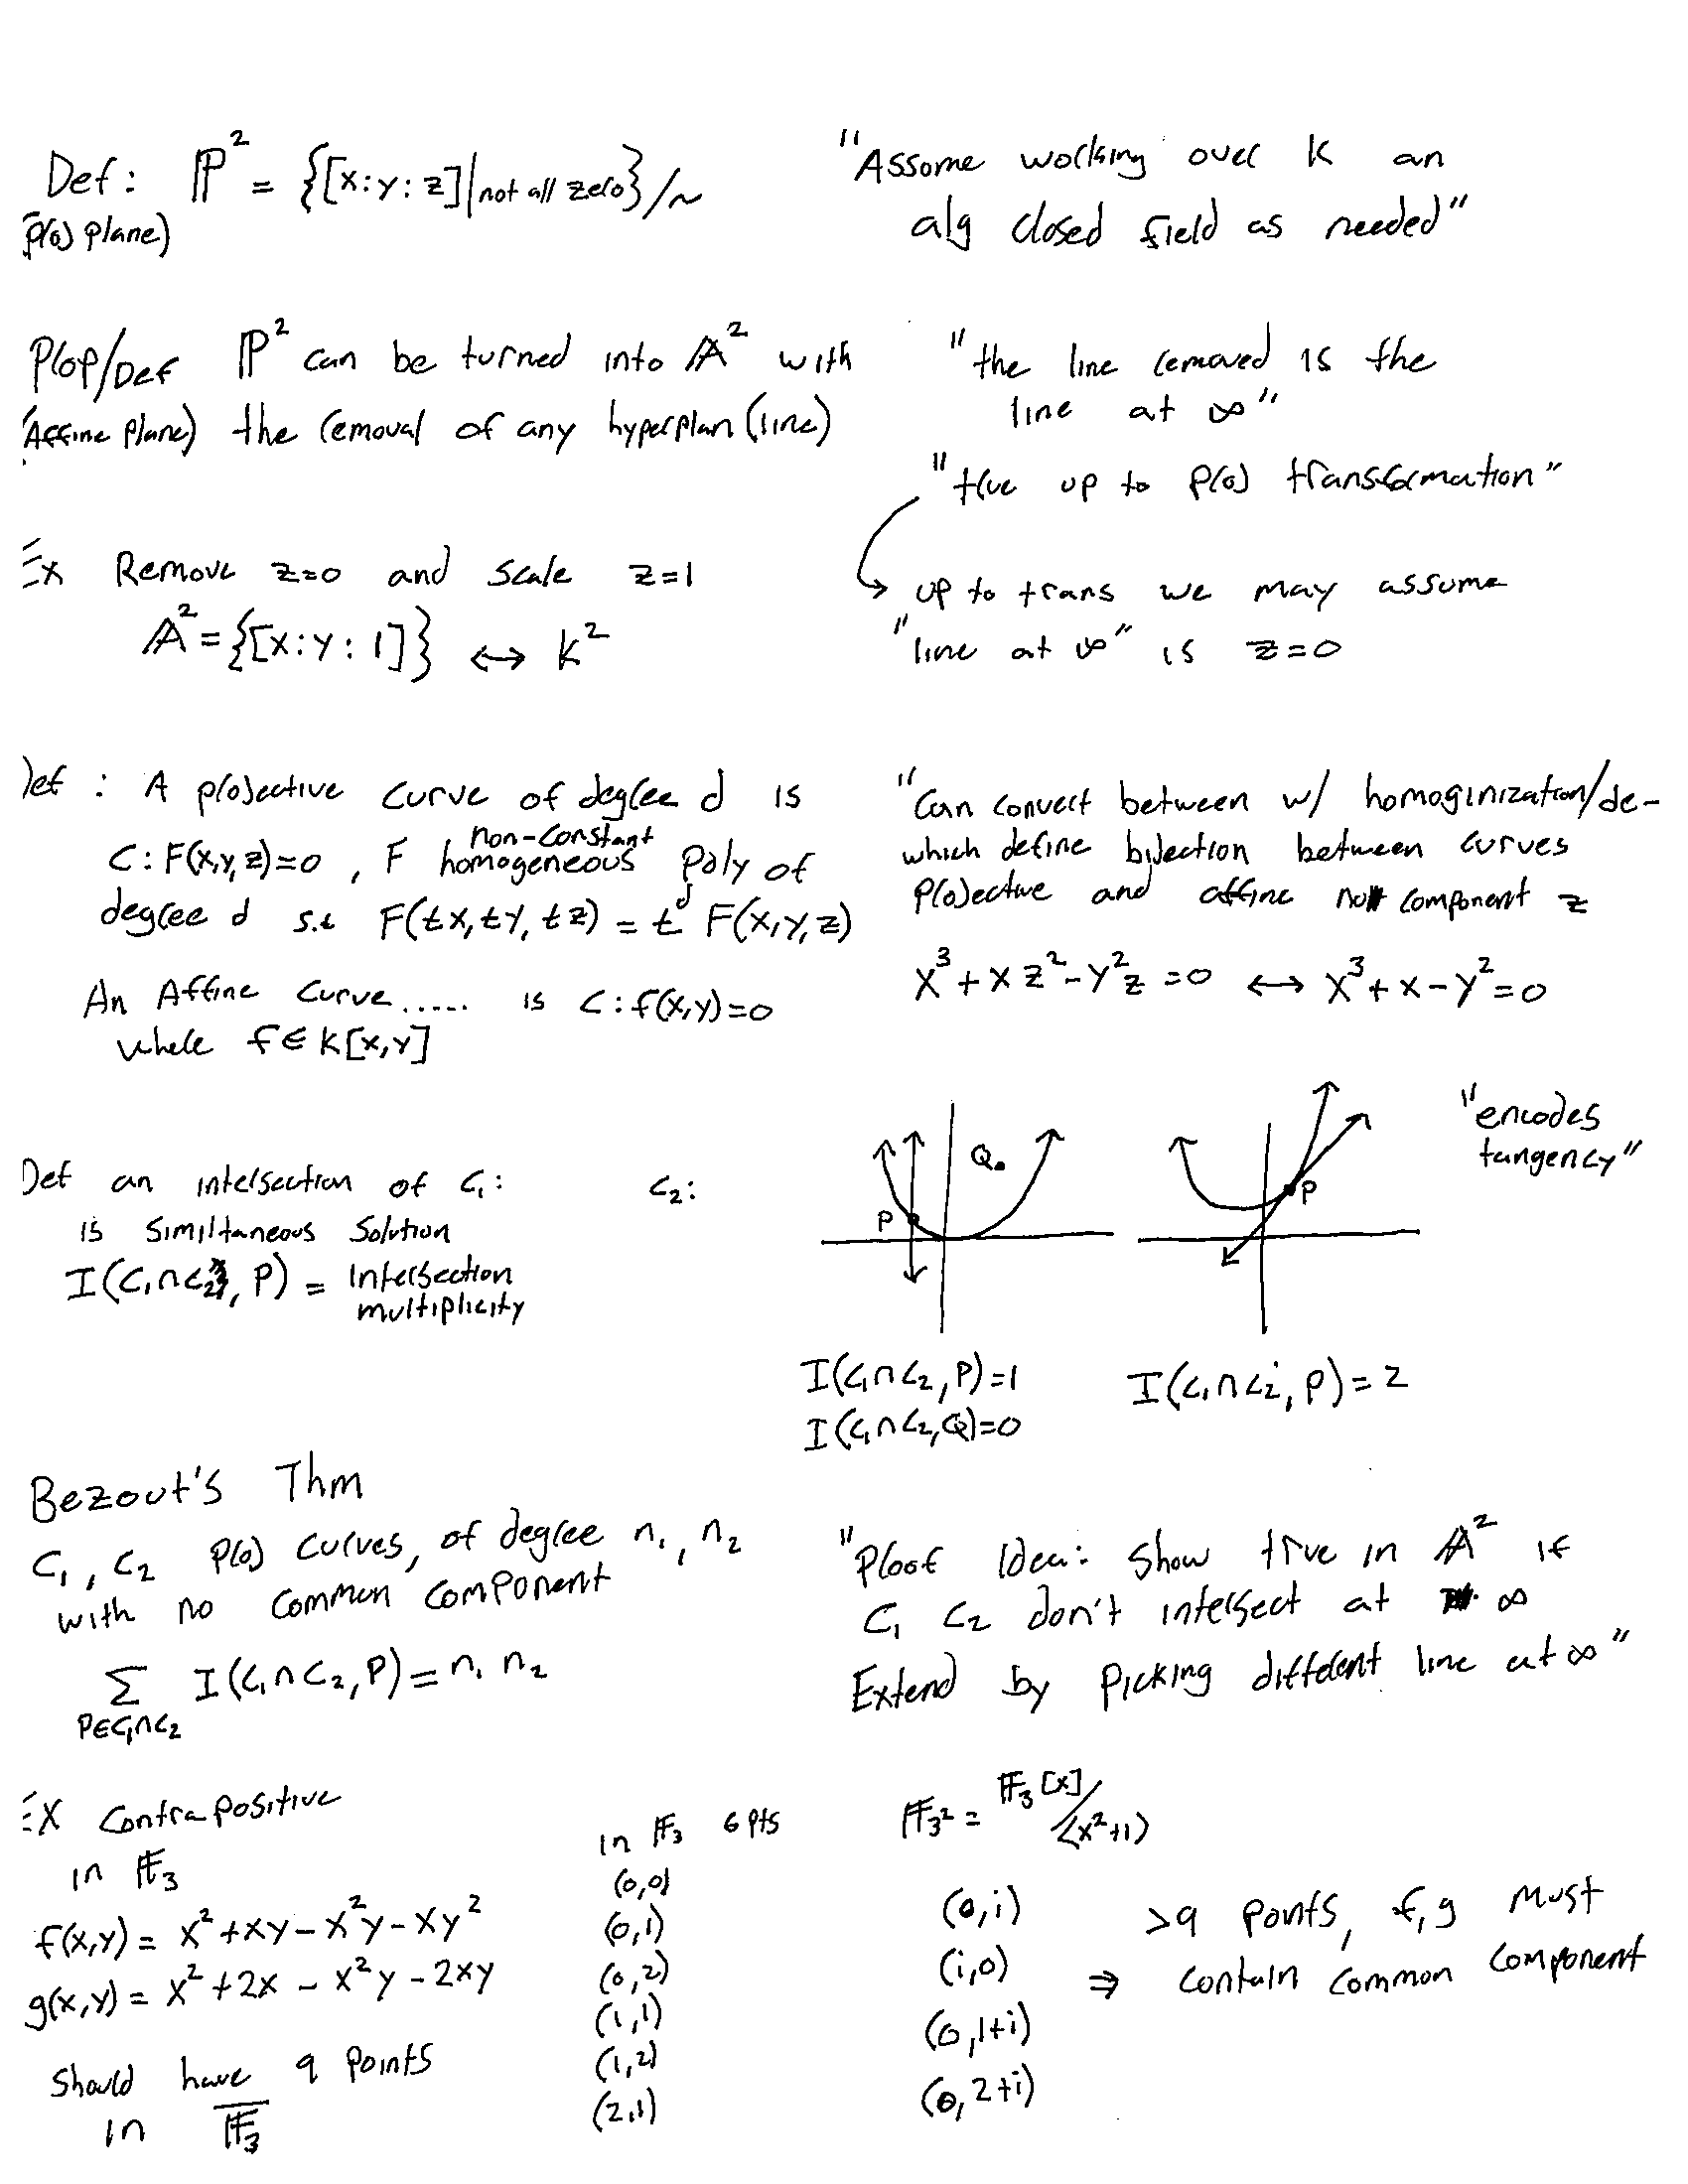 Def: ℙ² = {[x:y:z] | not all zero}/~
Proj plane)
"Assume working over K an
alg closed field as needed"
Prop/Def ℙ² can be turned into 𝔸² with
(Affine Plane) the removal of any hyperplan (line)
"the line removed is the
line at ∞"
"true up to proj transformation"
Ex Remove z=0 and scale z=1
𝔸² = {[x:y:1]} ↔ K²
up to trans we may assume
"line at ∞" is z=0
Def: A projective curve of degree d is
C: F(x,y,z)=0, F non-constant homogeneous poly of
degree d s.t F(tx,ty,tz) = t^d F(x,y,z)
An Affine Curve..... is C: f(x,y)=0
where f∈K[x,y]
"Can convert between w/ homoginization/de-
which define bijection between curves
projective and affine no component z
x³+xz²-y²z=0 ↔ x³+x-y²=0
Def an intersection of C₁: C₂:
is similtaneous solution
I(C₁∩C₂, P) = intersection
multiplicity
P
Q
P
"encodes
tangency"
I(C₁∩C₂, P)=1
I(C₁∩C₂, Q)=0
I(C₁∩C₂, P)=2
Bezout's Thm
C₁, C₂ proj curves, of degree n₁, n₂
with no common component
∑ I(C₁∩C₂, P) = n₁ n₂
P∈C₁∩C₂
"Proof Idea: show true in 𝔸² if
C₁ C₂ don't intersect at ∞
Extend by picking different line at ∞"
Ex Contrapositive
in 𝔽₃
f(x,y) = x²+xy-x²y-xy²
g(x,y) = x²+2x-x²y-2xy
should have 9 points
in 𝔽₃
in 𝔽₃ 6 pts
(0,0)
(0,1)
(0,2)
(1,1)
(1,2)
(2,1)
𝔽₃² = 𝔽₃[x]/(x²+1)
(0,i)
(i,0)
(0,1+i)
(0,2+i)
>9 points, f,g must
⇒ contain common component